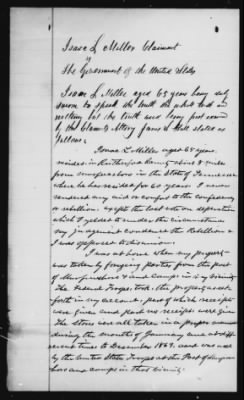 Isaac L Miller Claimant
vs
The Government of the United States
Isaac L Miller aged 65 years being duly
sworn to speak the truth the whole truth and
nothing but the truth and being first sworn
by the Claims Atty James H Hall states as
follows:
Isaac L Miller aged 65 years.
resides in Rutherford County about 8 miles
from Murfreesboro and in the State of Tennessee
where he has resided for 60 years. I never
rendered any aid or comfort to the confederacy
or rebellion. except the last vote on seperation
which I yielded to under the circumstances
my judgment condemed the Rebellion &
I was opposed to disunion.
I was at home when my property
was taken by foraging parties from the post
of Murfreesboro and camps in its vicinity
The Federal troops took the property as set
forth in my account, part of which receipts
were given and part no receipts were given
The stores was all taken in a proper manner
during the months of January and at diff
erent times to December 1864. and was used
by the United States Troops at the Post of Murfrees
boro and camps in that vicinity.